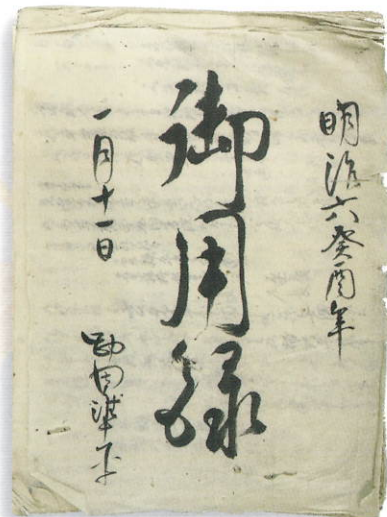 明治六癸酉年
御用録
一月十一日
田準平